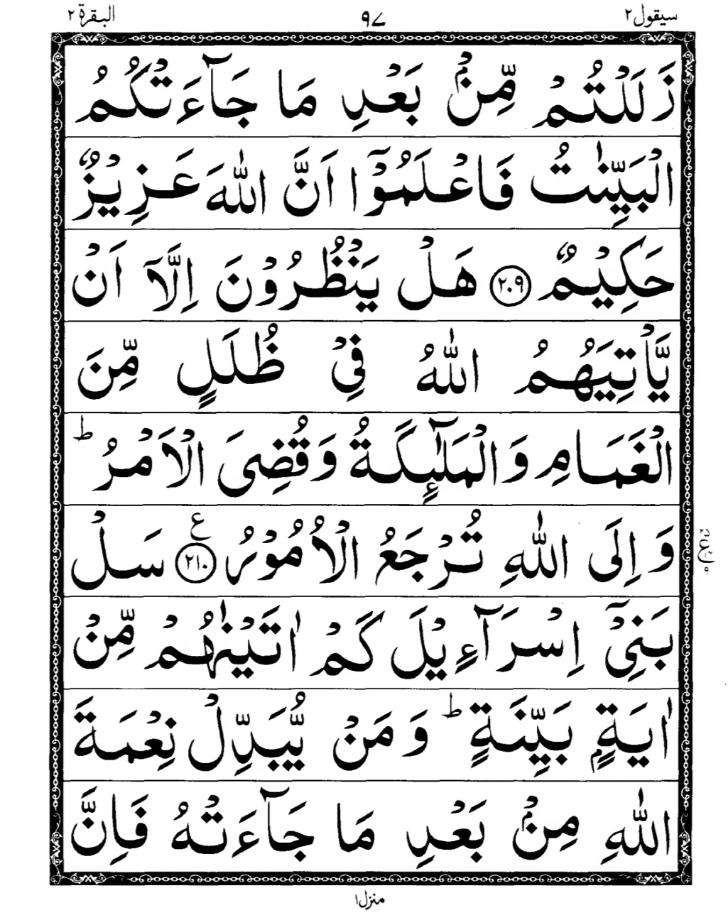 سيقول ٢ ٩٧ البقرة ٢
زَلَلْتُمْ مِّنْۢ بَعْدِ مَا جَآءَتْكُمُ
الْبَيِّنٰتُ فَاعْلَمُوْۤا اَنَّ اللّٰهَ عَزِيْزٌ
حَكِيْمٌ ٢٠٩ هَلْ يَنْظُرُوْنَ اِلَّاۤ اَنْ
يَّاْتِيَهُمُ اللّٰهُ فِيْ ظُلَلٍ مِّنَ
الْغَمَامِ وَالْمَلٰٓئِكَةُ وَقُضِيَ الْاَمْرُ ؕ
وَ اِلَى اللّٰهِ تُرْجَعُ الْاُمُوْرُ ٢١٠ ع سَلْ
بَنِيْۤ اِسْرَآءِيْلَ كَمْ اٰتَيْنٰهُمْ مِّنْ
اٰيَةٍۭ بَيِّنَةٍ ؕ وَ مَنْ يُّبَدِّلْ نِعْمَةَ
اللّٰهِ مِنْۢ بَعْدِ مَا جَآءَتْهُ فَاِنَّ
منزل ١